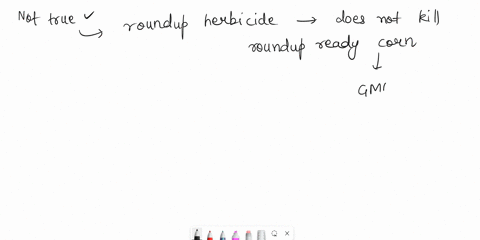 Not true ✓ → roundup herbicide → does not kill
roundup ready corn
↓
GM